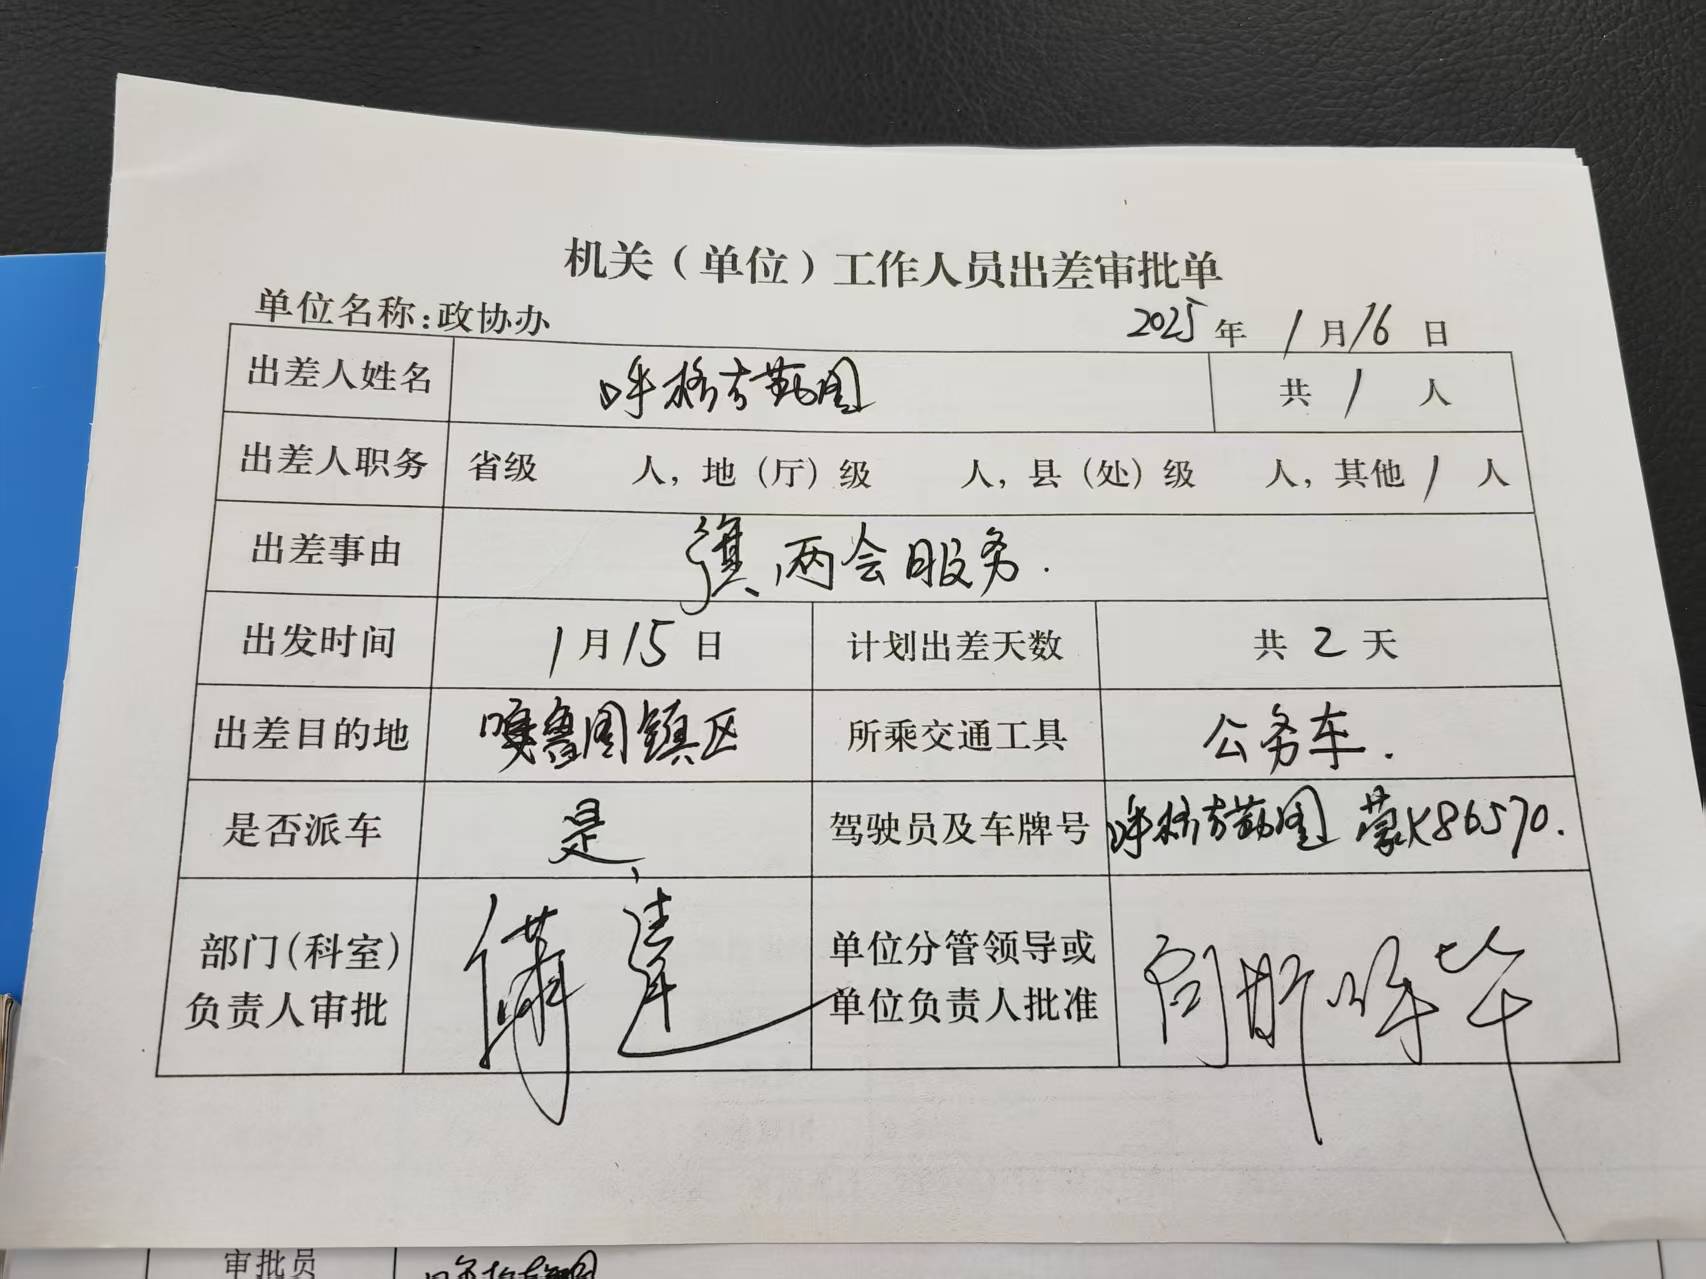 机关（单位）工作人员出差审批单
单位名称:政协办 2025年 1月16日
出差人姓名 呼格吉勒图 共 1 人
出差人职务 省级 人，地（厅）级 人，县（处）级 人，其他 1 人
出差事由 旗两会服务.
出发时间 1月15日 计划出差天数 共 2 天
出差目的地 嘎鲁图镇区 所乘交通工具 公务车.
是否派车 是 驾驶员及车牌号 呼格吉勒图 蒙K86570.
部门(科室) 单位分管领导或
负责人审批 单位负责人批准
审批员